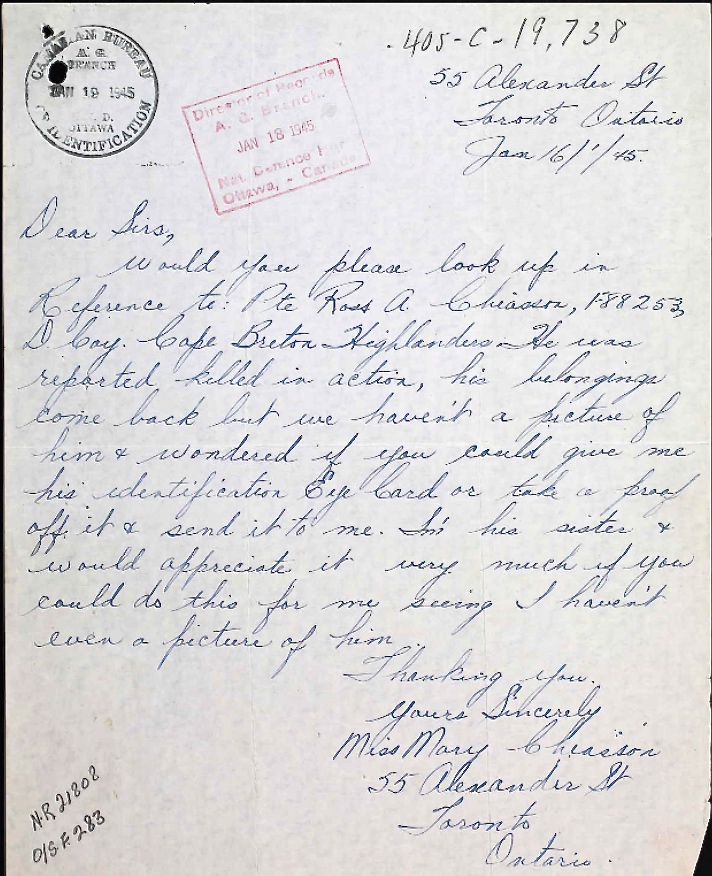 405-C-19,738
CANADIAN BUREAU
A. G.
BRANCH
JAN 19 1945
OTTAWA
IDENTIFICATION
Director of Records
A. G. Branch.
JAN 18 1945
Nat. Defence
Ottawa, - Canada
55 Alexander St
Toronto Ontario
Jan 16/1/45.
Dear Sirs,
Would you please look up in
Reference to: Pte Ross A. Chiasson, F88253,
D Coy. Cape Breton Highlanders. He was
reported killed in action, his belongings
come back but we haven't a picture of
him & wondered if you could give me
his identification Eye Card or take a proof
off it & send it to me. I'm his sister &
would appreciate it very much if you
could do this for me seeing I haven't
even a picture of him.
Thanking you.
Yours Sincerely
Miss Mary Chiasson
55 Alexander St
Toronto
Ontario.
N.R 21802
O/S F. 283